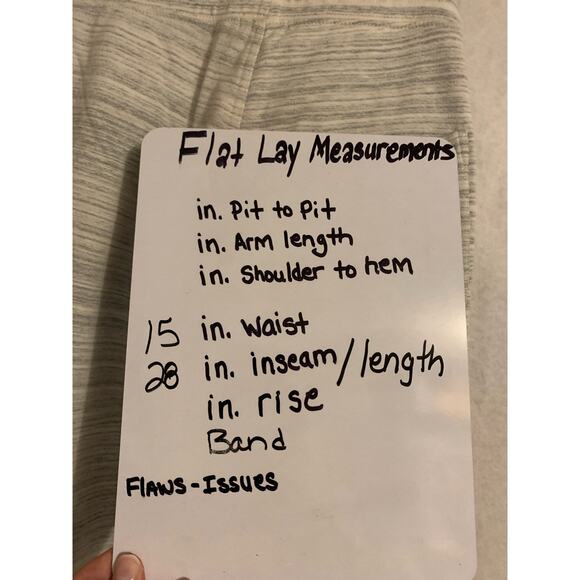 Flat Lay Measurements
in. Pit to Pit
in. Arm length
in. Shoulder to hem
15 in. Waist
28 in. inseam/length
in. rise
Band
FLAWS-ISSUES